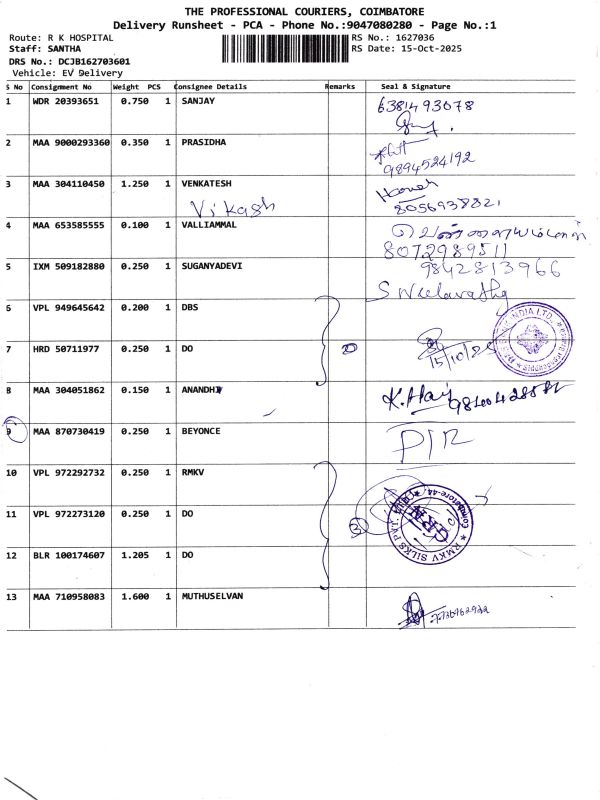 THE PROFESSIONAL COURIERS, COIMBATORE
Delivery Runsheet - PCA - Phone No.:9047080280 - Page No.:1
Route: R K HOSPITAL
RS No.: 1627036
Staff: SANTHA
RS Date: 15-Oct-2025
DRS No.: DCJB162703601
Vehicle: EV Delivery
S No Consignment No Weight PCS Consignee Details Remarks Seal & Signature
1 WDR 20393651 0.750 1 SANJAY 6381493078
2 MAA 9000293360 0.350 1 PRASIDHA
9894524192
3 MAA 304110450 1.250 1 VENKATESH
Vikash 8056938821
4 MAA 653585555 0.100 1 VALLIAMMAL
8072989511
5 IXM 509182880 0.250 1 SUGANYADEVI 9842813966
6 VPL 949645642 0.200 1 DBS
7 HRD 50711977 0.250 1 DO 2 15/10/25
8 MAA 304051862 0.150 1 ANANDHI K.
9 MAA 870730419 0.250 1 BEYONCE D/R
10 VPL 972292732 0.250 1 RMKV
11 VPL 972273120 0.250 1 DO 3
RMKV SILKS Coimbatore-44 GRN
12 BLR 100174607 1.205 1 DO
13 MAA 710958083 1.600 1 MUTHUSELVAN